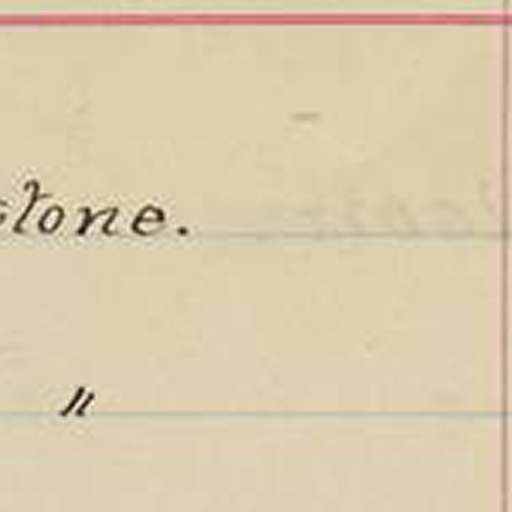 stone.
"